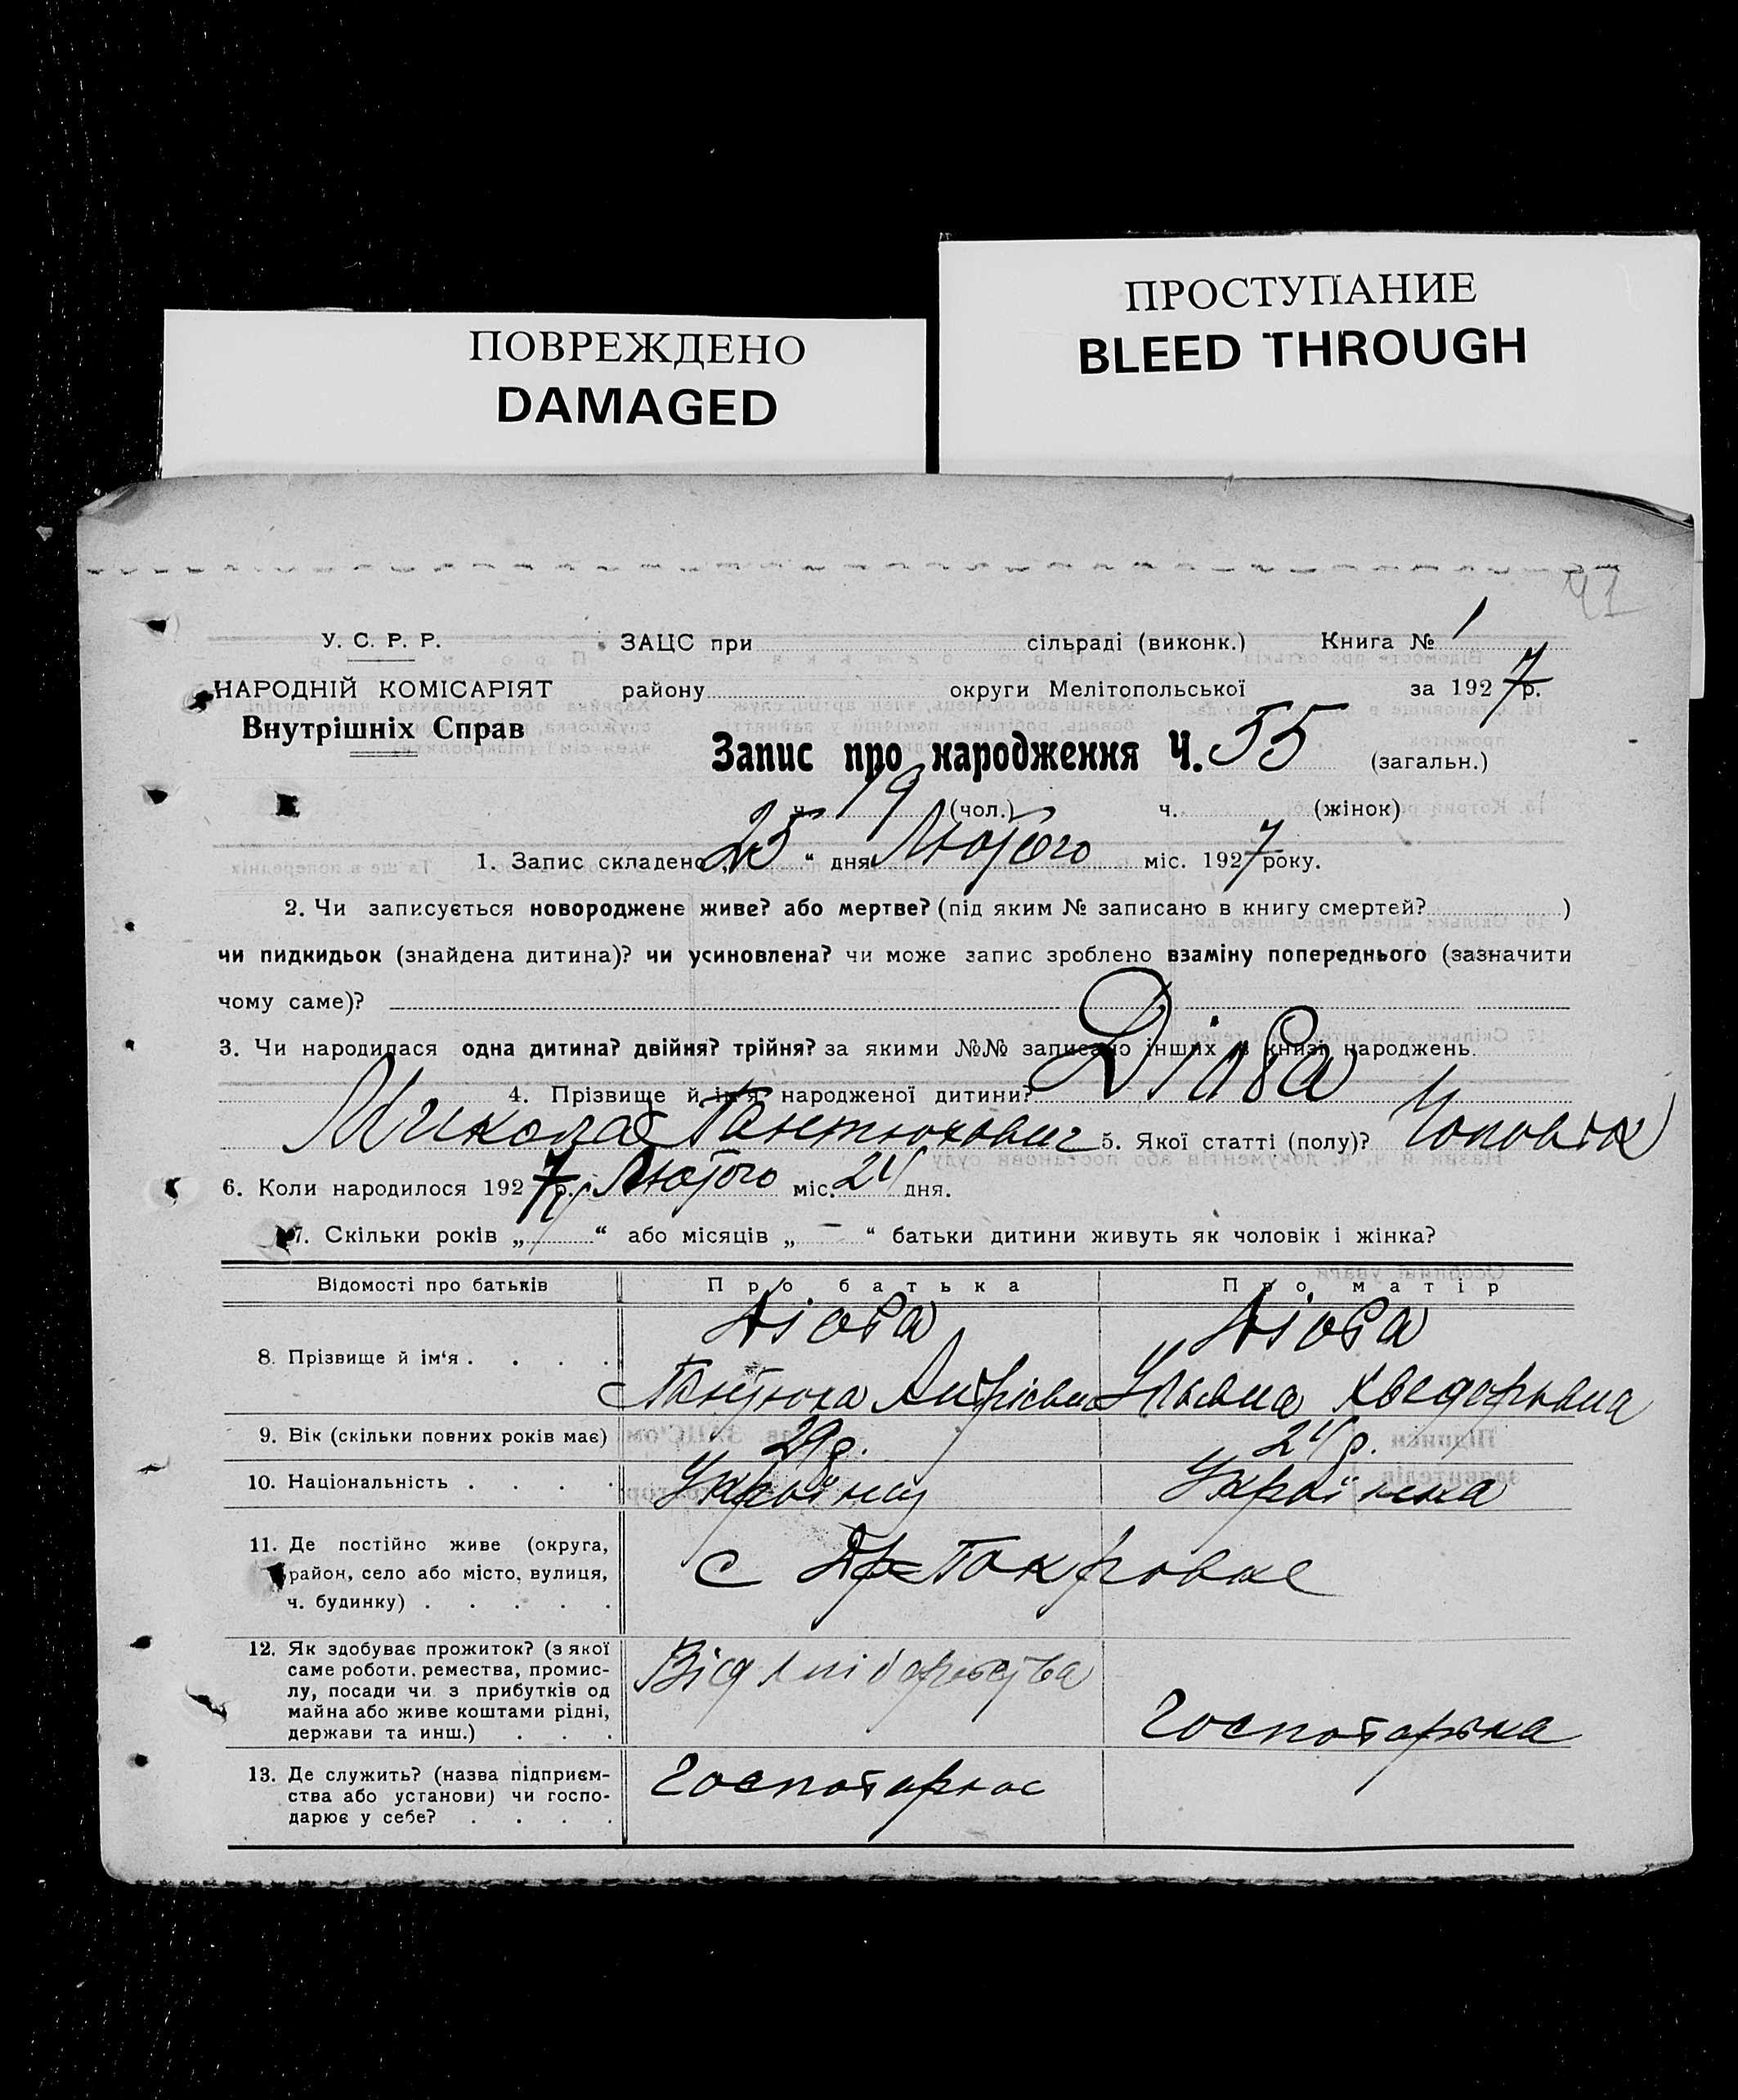 ПОВРЕЖДЕНО
DAMAGED
ПРОСТУПАНИЕ
BLEED THROUGH
41
У. С. Р. Р. ЗАЦС при сільраді (виконк.) Книга № 1
НАРОДНІЙ КОМІСАРІЯТ району округи Мелітопольської за 1927 р.
Внутрішніх Справ
Запис про народження Ч. 55 (загальн.)
ч. 19 (чол.) ч. (жінок)
1. Запис складено „25“ дня Лютого міс. 1927 року.
2. Чи записується новороджене живе? або мертве? (під яким № записано в книгу смертей? )
чи пидкидьок (знайдена дитина)? чи усиновлена? чи може запис зроблено взаміну попереднього (зазначити
чому саме)?
3. Чи народилася одна дитина? двійня? трійня? за якими №№ записано інших в книзі народжень.
4. Прізвище й ім'я народженої дитини? Діова
Микола Пантюхович 5. Якої статті (полу)? Чоловік
6. Коли народилося 1927 р. Лютого міс. 24 дня.
7. Скільки років „ “ або місяців „ — “ батьки дитини живуть як чоловік і жінка?
Відомості про батьків Про батька Про матір
8. Прізвище й ім'я . . . . Діова Діова
Пантюха Хведоровна
9. Вік (скільки повних років має) 29 р. 24 р.
10. Національність . . . . Українец Українка
11. Де постійно живе (округа,
район, село або місто, вулиця,
ч. будинку) . . . . .
с Покровке
12. Як здобуває прожиток? (з якої
саме роботи, ремества, промис-
лу, посади чи з прибутків од
майна або живе коштами рідні,
держави та инш.) . . .
Від хліборобства
Господарька
13. Де служить? (назва підприєм-
ства або установи) чи госпо-
дарює у себе? . . . .
Господарює